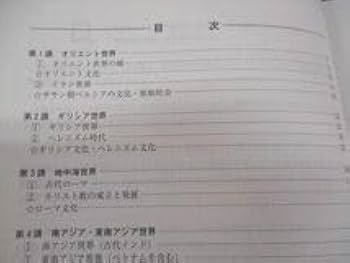 目 次
第1講 オリエント世界
① オリエント世界の
☆オリエント文化
② イラン世界
☆ササン朝ペルシアの文化・
第2講 ギリシア世界
① ギリシア世界
② ヘレニズム時代
☆ギリシア文化・ヘレニズム文化
第3講 地中海世界
① 古代ローマ
② キリスト教の成立と発展
☆ローマ文化
第4講 南アジア・東南アジア世界
① 南アジア世界(古代インド)
② 東南アジア世界(ベトナムを含む)